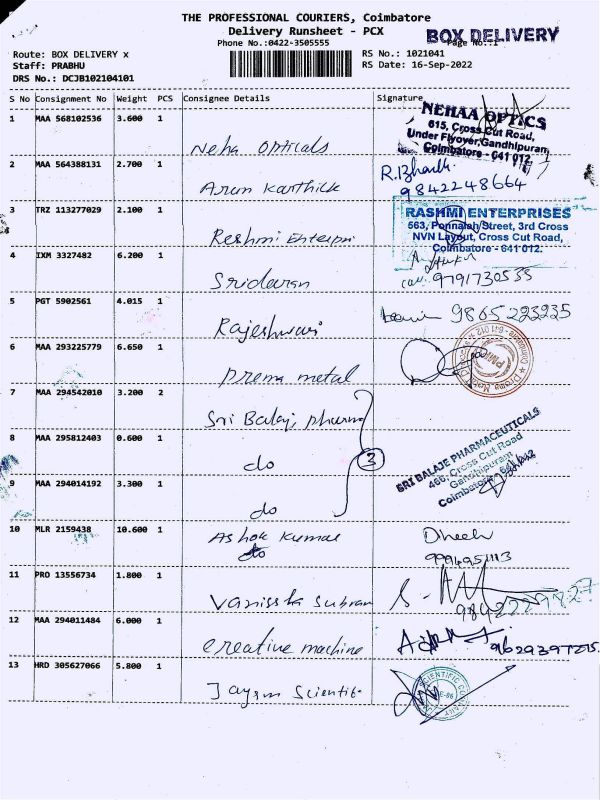 THE PROFESSIONAL COURIERS, Coimbatore
Delivery Runsheet - PCX
BOX DELIVERY
Phone No.:0422-3505555
Page No.:1
Route: BOX DELIVERY x
RS No.: 1021041
Staff: PRABHU
RS Date: 16-Sep-2022
DRS No.: DCJB102104101
S No Consignment No Weight PCS Consignee Details Signature
1 MAA 568102536 3.600 1
Neha Opticals
NEHAA OPTICS
615, Cross Cut Road,
Under Flyover, Gandhipuram,
Coimbatore - 641 012.
2 MAA 564388131 2.700 1
Arun Karthick
9842248664
3 TRZ 113277029 2.100 1
Reshmi Enterpri
RASHMI ENTERPRISES
563, Ponnaiah Street, 3rd Cross
NVN Layout, Cross Cut Road,
Coimbatore - 641 012.
4 IXM 3327482 6.200 1
Sridaran
9791730535
5 PGT 5902561 4.015 1
Rajeshwari
9865223235
6 MAA 293225779 6.650 1
prema metal
7 MAA 294542010 3.200 2
Sri Balaji pharma
8 MAA 295812403 0.600 1
do
3
SRI BALAJE PHARMACEUTICALS
466, Cross Cut Road
Gandhipuram
Coimbatore
9 MAA 294014192 3.300 1
do
10 MLR 2159438 10.600 1
Ashok Kumar
11 PRO 13556734 1.800 1
9842229827
12 MAA 294011484 6.000 1
creative machine
13 HRD 305627066 5.800 1
Jayam Scientific